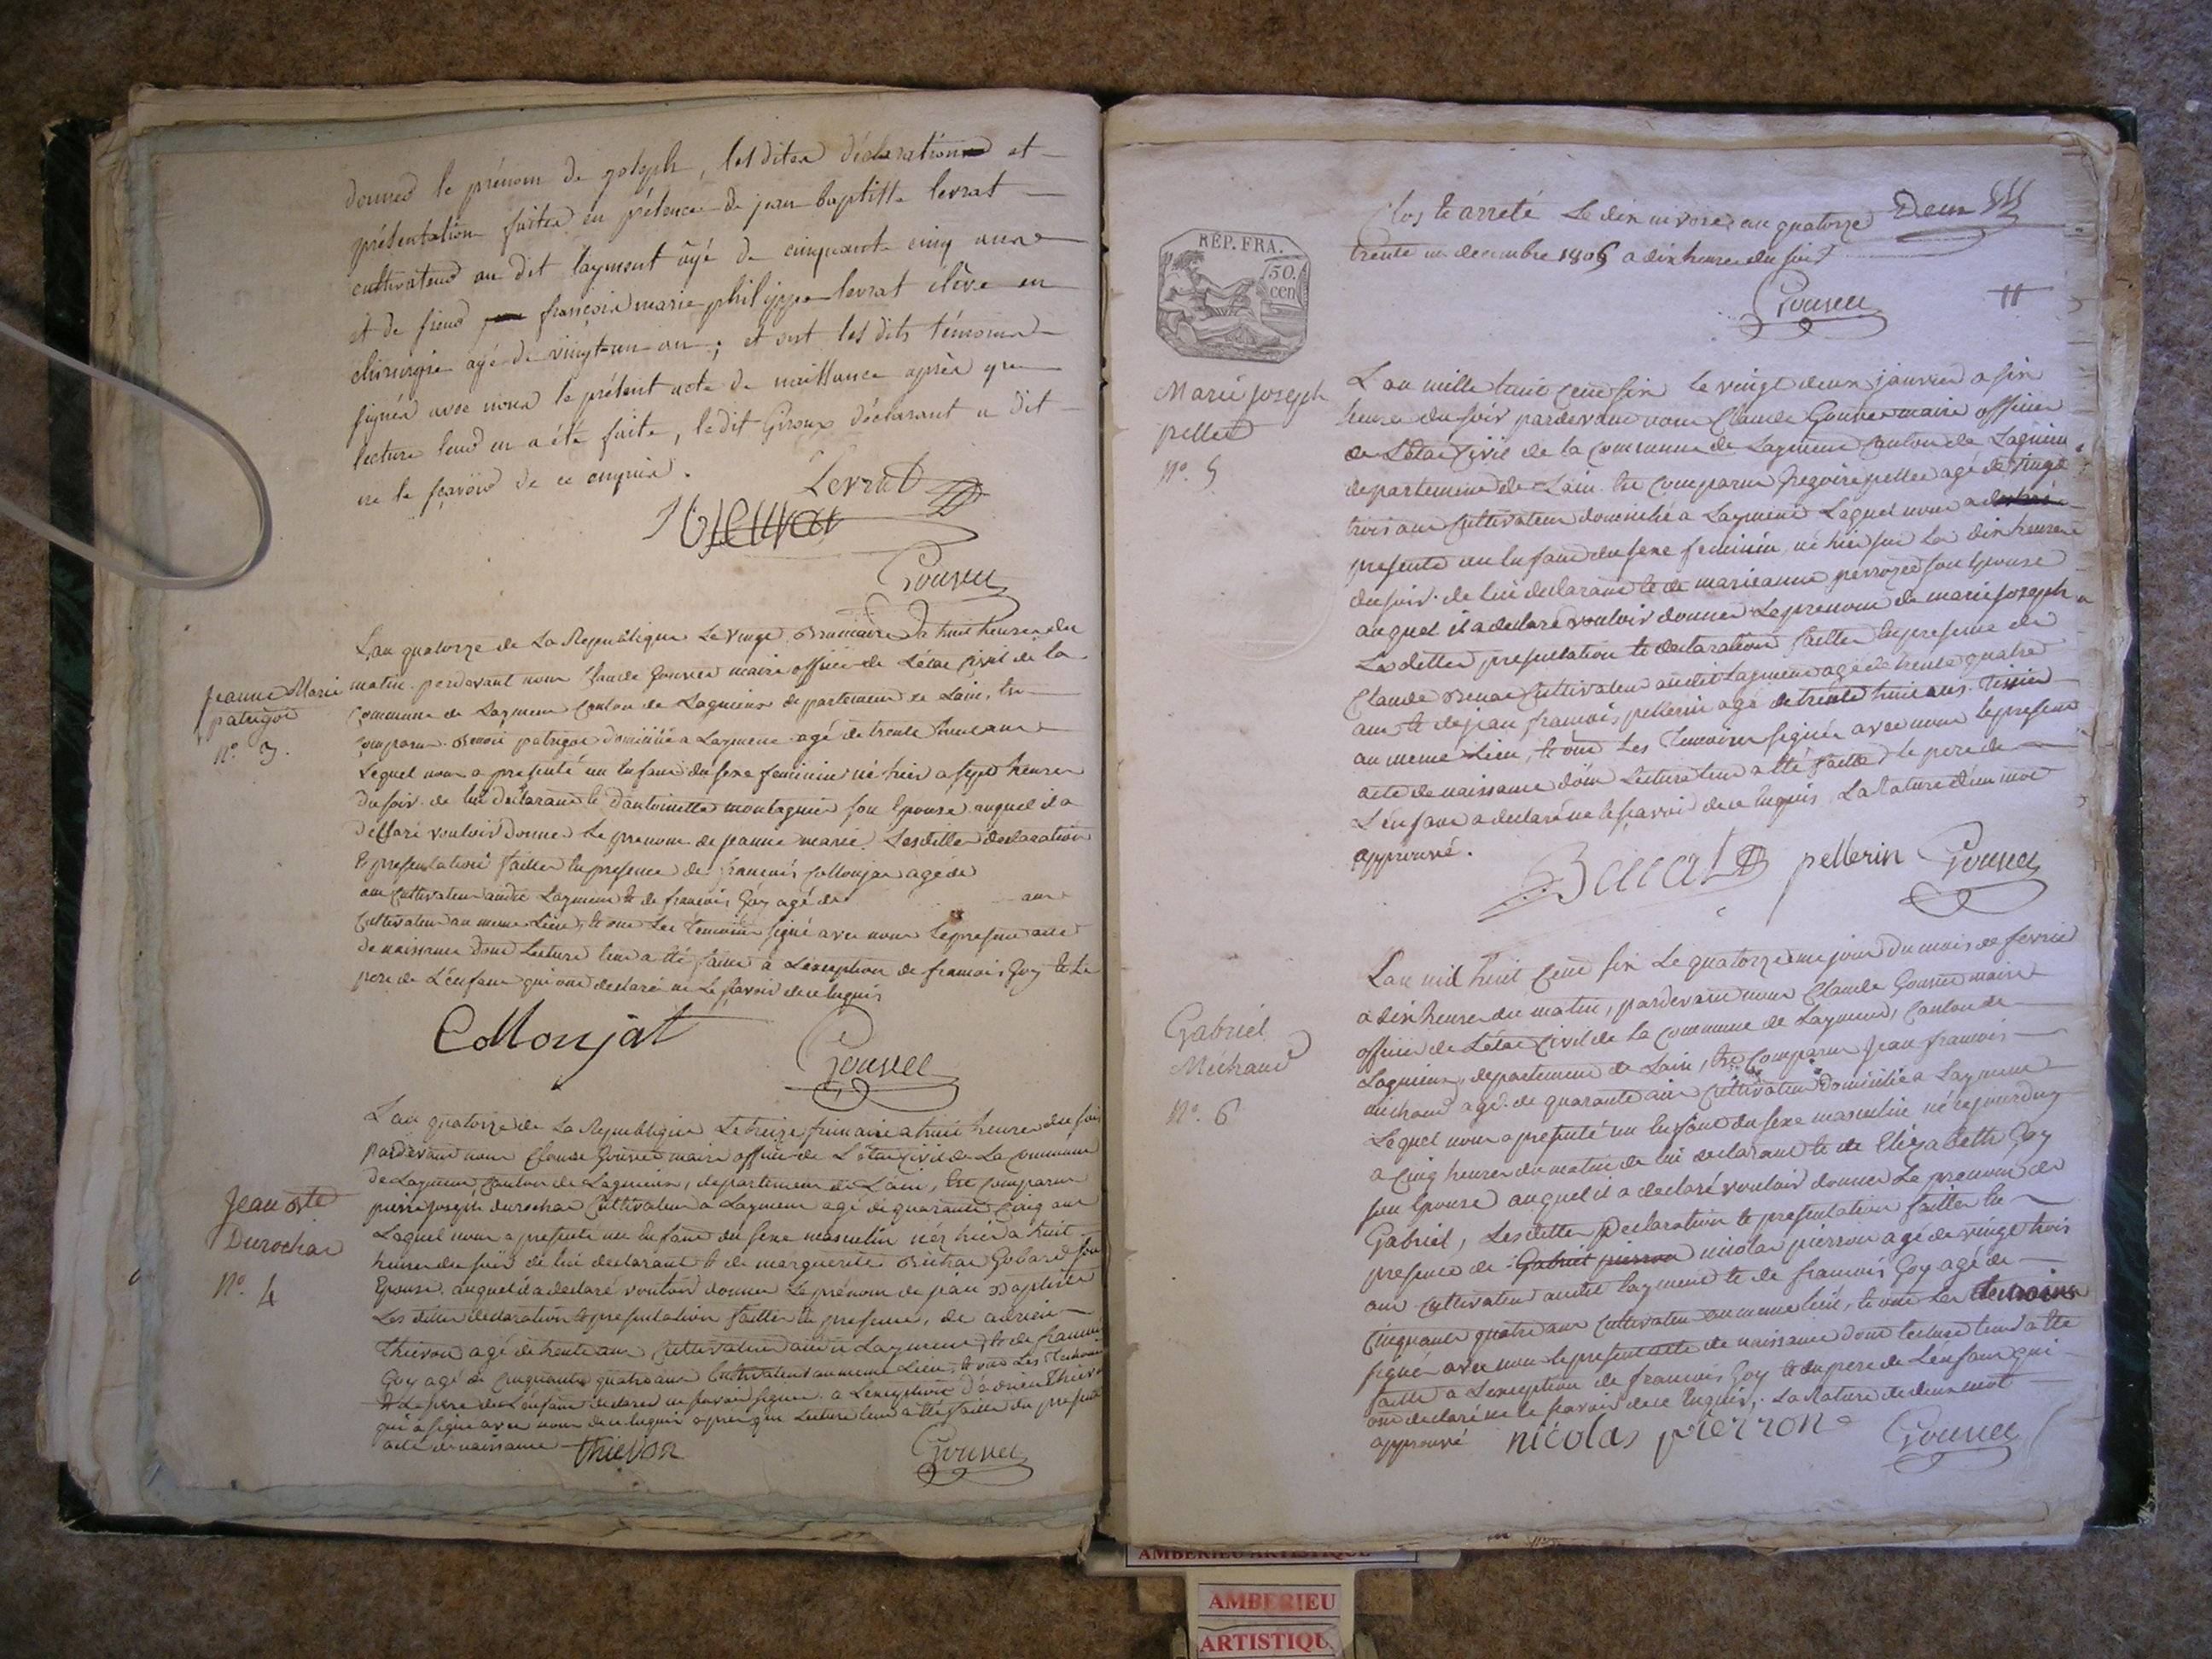 donner le prénom de joseph, les dites déclaration et
présentation faites en présence de jean baptiste levrat
cultivateur au dit laymont âgé de cinquante cinq ans
et de sieur françois marie philippe levrat élève en
chirurgie agé de vingt-un an; et ont les dits témoins
signés avec nous le présent acte de naissance après que
lecture leur en a été faite, le dit Giroux déclarant a dit
ne le sçavoir de ce enquis.
Levrat
Gouvee
Jeanne Marie
patrigot
N°. 3.
L'an quatorze de La Republique Le vingt Brumaire a huit heures du
matin pardevant nous Claude Gouvee maire officier de L'état Civil de la
Commune de Laymens Canton de Lagnieux departement de Lain, est
comparu Benoit patrigot domicilié a Laymens agé de trente huit ans
Lequel nous a presenté un Enfant du sexe feminin né hier a sept heures
du soir de lui declarant et d'antoinette montagnier son Epouse auquel il a
déclaré vouloir donner le prenom de jeanne marie. Lesdittes declaration
et presentation faittes en presence de francois Collonjat agé de
ans Cultivateur audit Laymens et de francois Goy agé de ans
Cultivateur au meme Lieu, et ont Les temoins signé avec nous Le present acte
de naissance dont Lecture leur a été faitte a L'exception de francois Goy et le
pere de L'enfant qui ont declaré ne Le sçavoir de ce Enquis
Collonjat
Gouvee
Jean Bte
Durochat
N°. 4
L'an quatorze de La Republique Le treize frimaire a huit heures du soir
Pardevant nous Claude Gouvee maire officier de L'état Civil de La Commune
de Laymens Canton de Lagnieux, departement de Lain, Est Comparu
pierre joseph durochat Cultivateur a Laymens agé de quarante Cinq ans
Lequel nous a presenté un Enfant du sexe masculin né hier a huit
heures du soir de lui declarant et de marguerite Gobard son
Epouse, auquel il a declaré vouloir donner Le prénom de jean Baptiste
Les dittes declaration et presentation faittes en presence, de adrien
thievon agé de trente ans Cultivateur audit Laymens, et de francois
Goy agé de Cinquante quatre ans Cultivateur au meme Lieu, et ont Les Temoins
et Le pere de L'enfant declaré ne savoir signer a L'exception d'adrien thievon
qui a signé avec nous de ce Enquis apres que Lecture leur a été faitte du present
acte de naissance
thievon
Gouvee
REP. FRA.
50.
cen
Clos et arreté Le dix nivose an quatorze
trente un decembre 1805 a dix heures du soir
Deux
Gouvee
Marie joseph
pellet
N°. 5
L'an mille huit Cent six le vingt deux janvier a six
heures du soir pardevant nous Claude Gouvee maire officier
de L'état Civil de la Commune de Laymens Canton de Lagnieu
departement de Lain est Comparu Gregoire pellet agé de vingt
trois ans Cultivateur domicilié a Laymens Lequel nous a
presenté un Enfant du sexe feminin, né hier sur les dix heures
du soir de lui declarant et de marieanne perrozet son Epouse
auquel il a declaré vouloir donner Le prenom de marie joseph
Lesdittes presentation et declaration faittes En presence de
Claude Benat Cultivateur audit Laymens agé de trente quatre
ans et de jean francois pellerin agé de trente huit ans Tissier
au meme Lieu, et ont Les Temoins signés avec nous le present
acte de naissance dont Lecture leur a été faitte, le pere de
L'enfant a declaré ne le sçavoir de ce Enquis. La Rature d'un mot
approuvé.
pellerin
Gouvee
Gabriel
Michaud
N°. 6
L'an mil huit Cent six Le quatorzieme jour du mois de fevrier
a dix heures du matin, pardevant nous Claude Gouvee maire
officier de L'état Civil de la Commune de Laymens, Canton de
Lagnieux, departement de Lain, Est Comparu Jean francois
michaud agé de quarante ans Cultivateur domicilié a Laymens
Lequel nous a presenté un Enfant du sexe masculin né cejourd'huy
a Cinq heures du matin de lui declarant et de Elizabeth Goy
son Epouse auquel il a declaré vouloir donner Le prenom de
Gabriel, Lesdittes Declaration et presentation faittes En
presence de Gabriel pierron nicolas pierron agé de vingt trois
ans Cultivateur audit Laymens et de francois Goy agé de
Cinquante quatre ans Cultivateur au meme Lieu, et ont Les temoins
signé avec nous le present acte de naissance dont lecture leur a été
faitte a L'exception de francois Goy et du pere de L'enfant qui
ont declaré ne le savoir de ce Enquis. La Rature de deux mot
approuvé
nicolas pierron
Gouvee
AMBERIEU ARTISTIQUE
AMBERIEU
ARTISTIQU